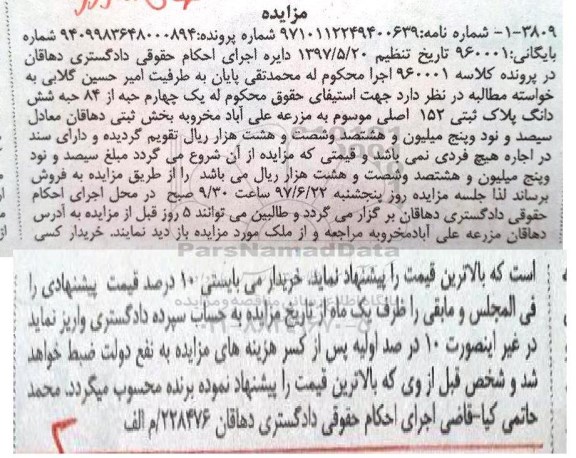 مزایده
۳۸۰۹-۱- شماره نامه:۹۷۱۰۱۱۲۲۴۹۴۰۰۶۳۹ شماره پرونده:۹۴۰۹۹۸۳۶۴۸۰۰۰۸۹۴ شماره
بایگانی:۹۶۰۰۰۱ تاریخ تنظیم ۱۳۹۷/۵/۲۰ دایره اجرای احکام حقوقی دادگستری دهاقان
در پرونده کلاسه ۹۶۰۰۰۱ اجرا محکوم له محمدتقی پایان به طرفیت امیر حسین گلابی به
خواسته مطالبه در نظر دارد جهت استیفای حقوق محکوم له یک چهارم حبه از ۸۴ حبه شش
دانگ پلاک ثبتی ۱۵۲ اصلی موسوم به مزرعه علی آباد مخروبه بخش ثبتی دهاقان معادل
سیصد و نود وپنج میلیون و هشتصد وشصت و هشت هزار ریال تقویم گردیده و دارای سند
در اجاره هیچ فردی نمی باشد و قیمتی که مزایده از آن شروع می گردد مبلغ سیصد و نود
وپنج میلیون و هشتصد وشصت و هشت هزار ریال می باشد را از طریق مزایده به فروش
برساند لذا جلسه مزایده روز پنجشنبه ۹۷/۶/۲۲ ساعت ۹/۳۰ صبح در محل اجرای احکام
حقوقی دادگستری دهاقان بر گزار می گردد و طالبین می توانند ۵ روز قبل از مزایده به آدرس
دهاقان مزرعه علی آبادمخروبه مراجعه و از ملک مورد مزایده باز دید نمایند. خریدار کسی
ParsNamadData
است که بالاترین قیمت را پیشنهاد نماید. خریدار می بایستی ۱۰ درصد قیمت پیشنهادی را
فی المجلس و مابقی را ظرف یک ماه از تاریخ مزایده به حساب سپرده دادگستری واریز نماید
در غیر اینصورت ۱۰ در صد اولیه پس از کسر هزینه های مزایده به نفع دولت ضبط خواهد
شد و شخص قبل از وی که بالاترین قیمت را پیشنهاد نموده برنده محسوب میگردد. محمد
حاتمی کیا-قاضی اجرای احکام حقوقی دادگستری دهاقان ۲۲۸۴۷۶/م الف